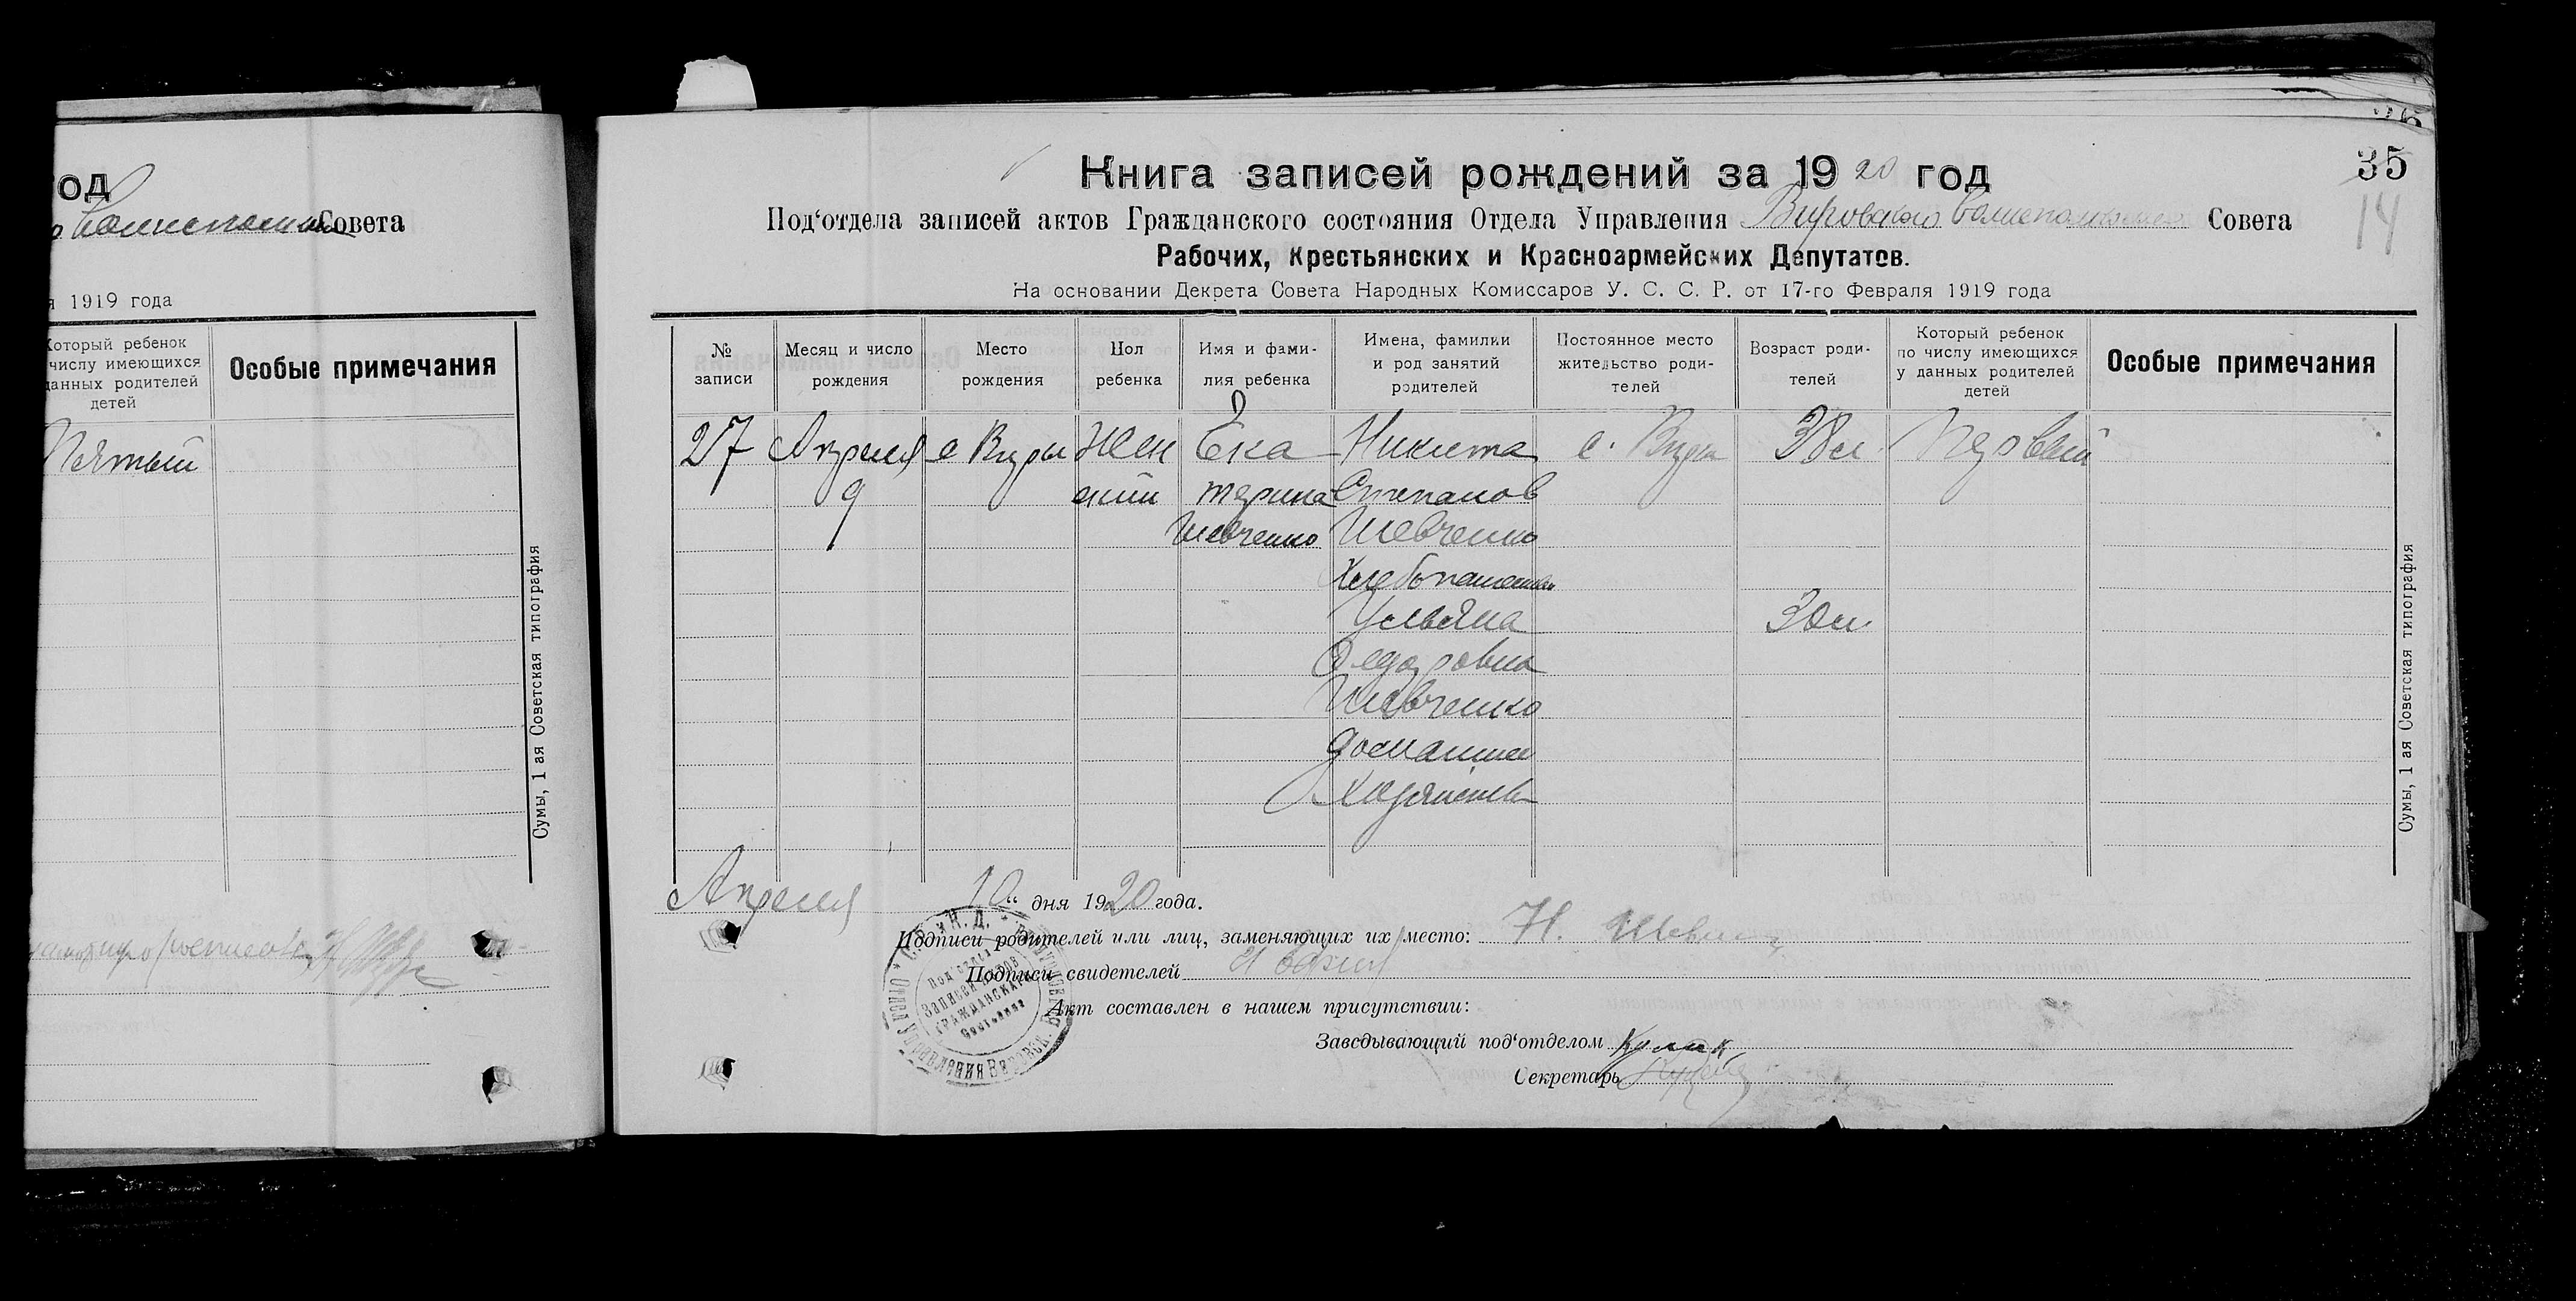 од
Совета
я 1919 года
Который ребенок
числу имеющихся
данных родителей
детей
Особые примечания
Пятый
Сумы, 1 ая Советская типография
36
35
14
Книга записей рождений за 1920 год
Под‘отдела записей актов Гражданского состояния Отдела Управления Вировского Волисполкома Совета
Рабочих, Крестьянских и Красноармейских Депутатов.
На основании Декрета Совета Народных Комиссаров У. С. С. Р. от 17-го Февраля 1919 года
№
записи
Месяц и число
рождения
Место
рождения
Пол
ребенка
Имя и фами-
лия ребенка
Имена, фамилии
и род занятий
родителей
Постоянное место
жительство роди-
телей
Возраст роди-
телей
Который ребенок
по числу имеющихся
у данных родителей
детей
Особые примечания
27 Апреля с Виры Жен Ека Никита с. Виры 38 л. Первый
9 ский терина Степанов
Шевченко Шевченко
Хлебопашество
Ульяна 30 л.
Федоровна
Шевченко
домашнее
Хозяйство
Апреля 10 “ дня 1920 года.
Подписи родителей или лиц, заменяющих их место: Н.
Подписи свидетелей
Акт составлен в нашем присутствии:
Заведывающий под‘отделом
Секретарь
Отдел Управления
Под‘отдел
Записей Актов
Гражданскаго
Состояния
Сумы, 1 ая Советская типография